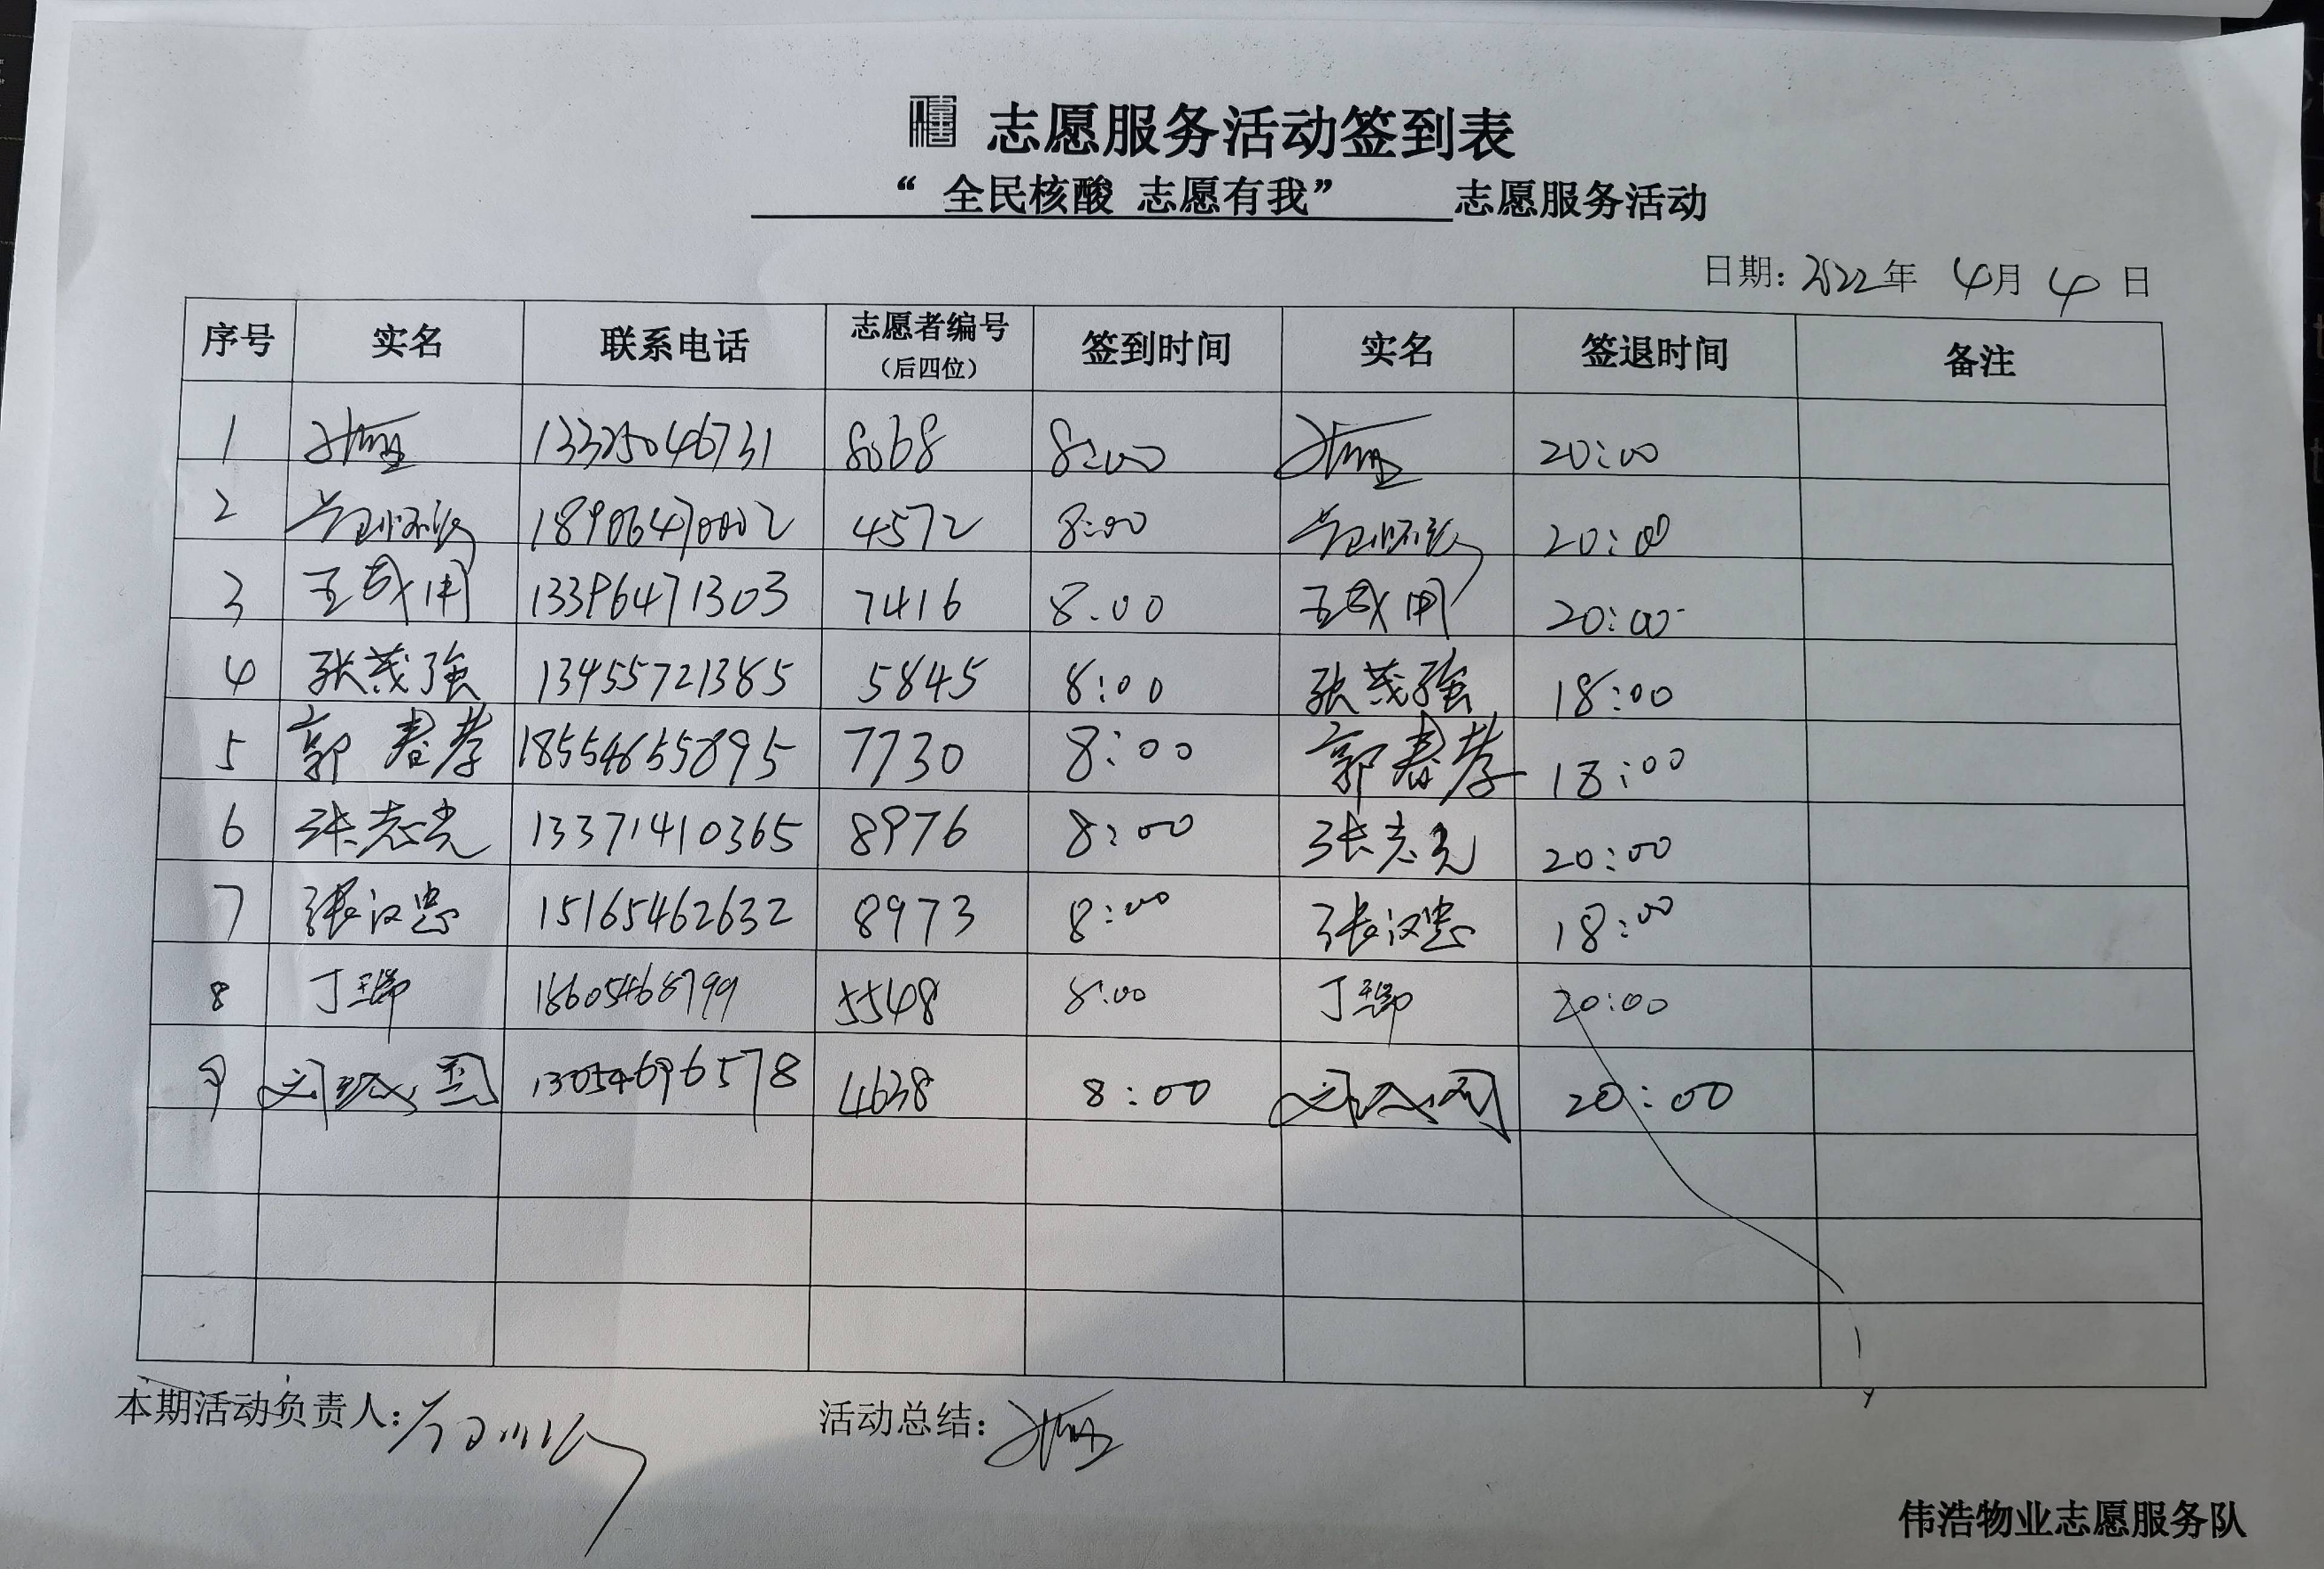 志愿服务活动签到表
“ 全民核酸 志愿有我” 志愿服务活动
日期：2022年 4月 4 日
序号 实名 联系电话 志愿者编号（后四位） 签到时间 实名 签退时间 备注
1 13325046731 8068 8:00 20:00
2 18906470002 4572 8:00 20:00
3 13396471303 7416 8:00 20:00
4 张茂强 13455721385 5845 8:00 张茂强 18:00
5 郭春孝 18554655895 7730 8:00 郭春孝 18:00
6 张志光 13371410365 8976 8:00 张志光 20:00
7 张汉忠 15165462632 8973 8:00 张汉忠 18:00
8 丁瑞 18605468799 5548 8:00 丁瑞 20:00
9 13054696578 4638 8:00 20:00
本期活动负责人： 活动总结：
伟浩物业志愿服务队